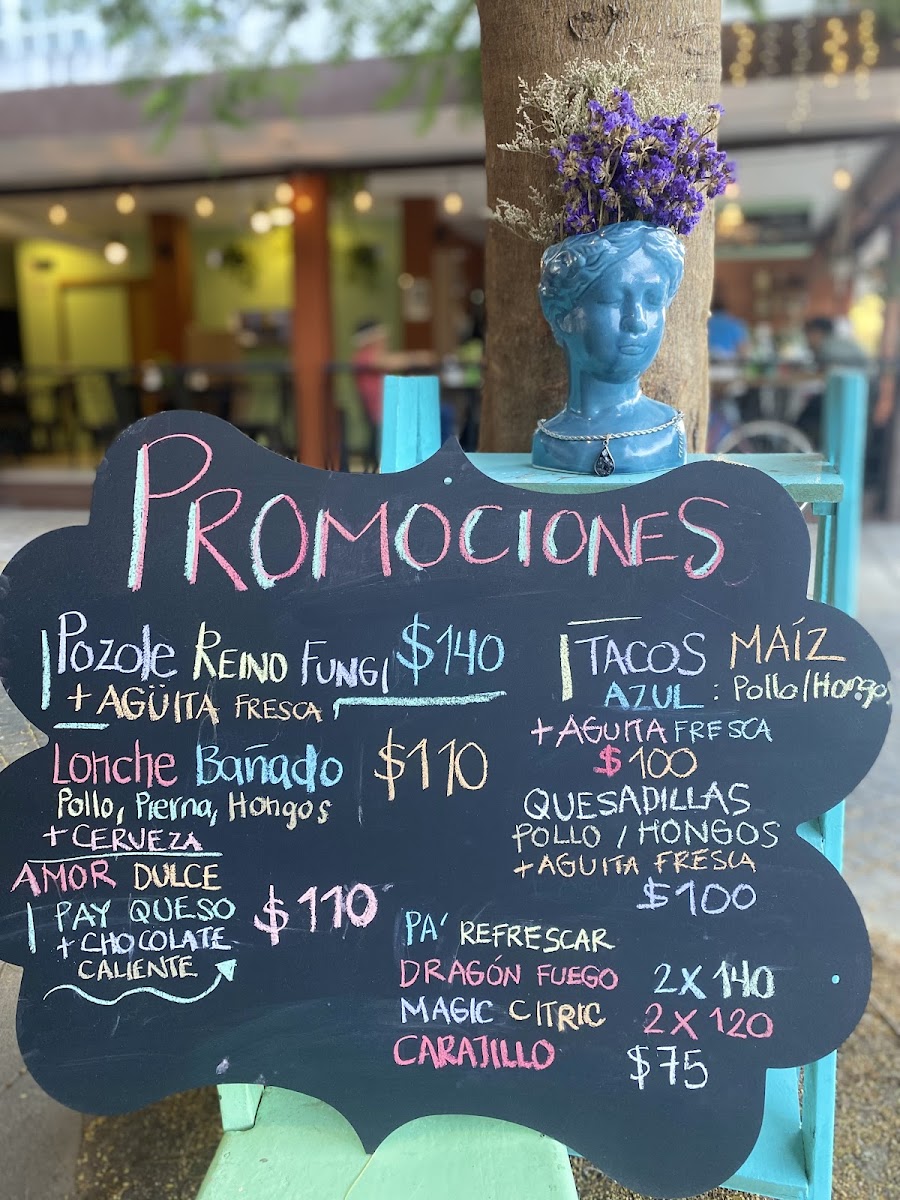 PROMOCIONES
Pozole REINO FUNGI $140
+ AGÜITA FRESCA
Lonche Bañado $110
Pollo, Pierna, Hongos
+ CERVEZA
AMOR DULCE
PAY QUESO $110
+ CHOCOLATE
CALIENTE
TACOS MAÍZ
AZUL : Pollo/Hongo
+ AGUITA FRESCA
$100
QUESADILLAS
POLLO / HONGOS
+ AGUITA FRESCA
$100
PA' REFRESCAR
DRAGÓN FUEGO 2X140
MAGIC CITRIC 2X120
CARAJILLO $75